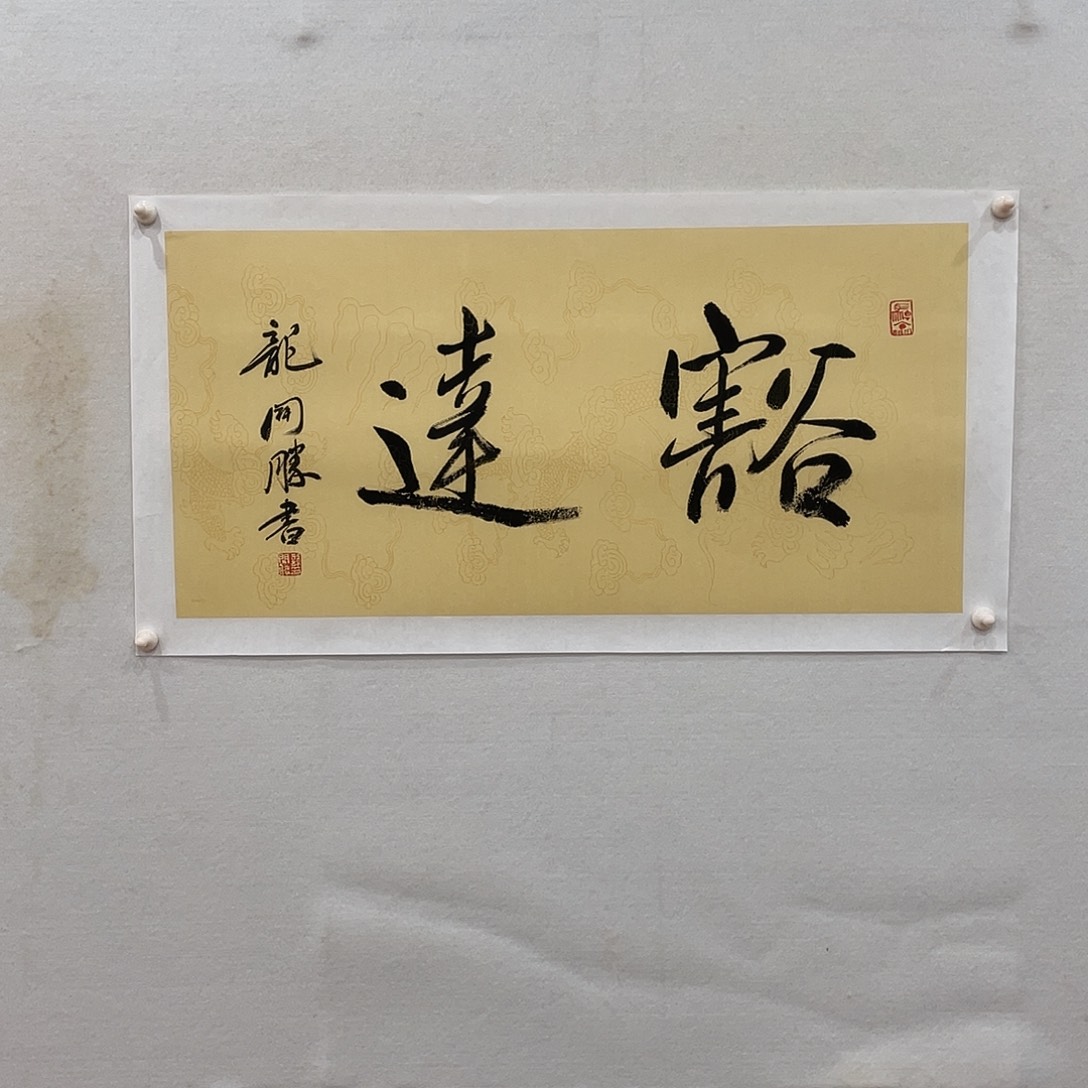 豁達
龍開勝書